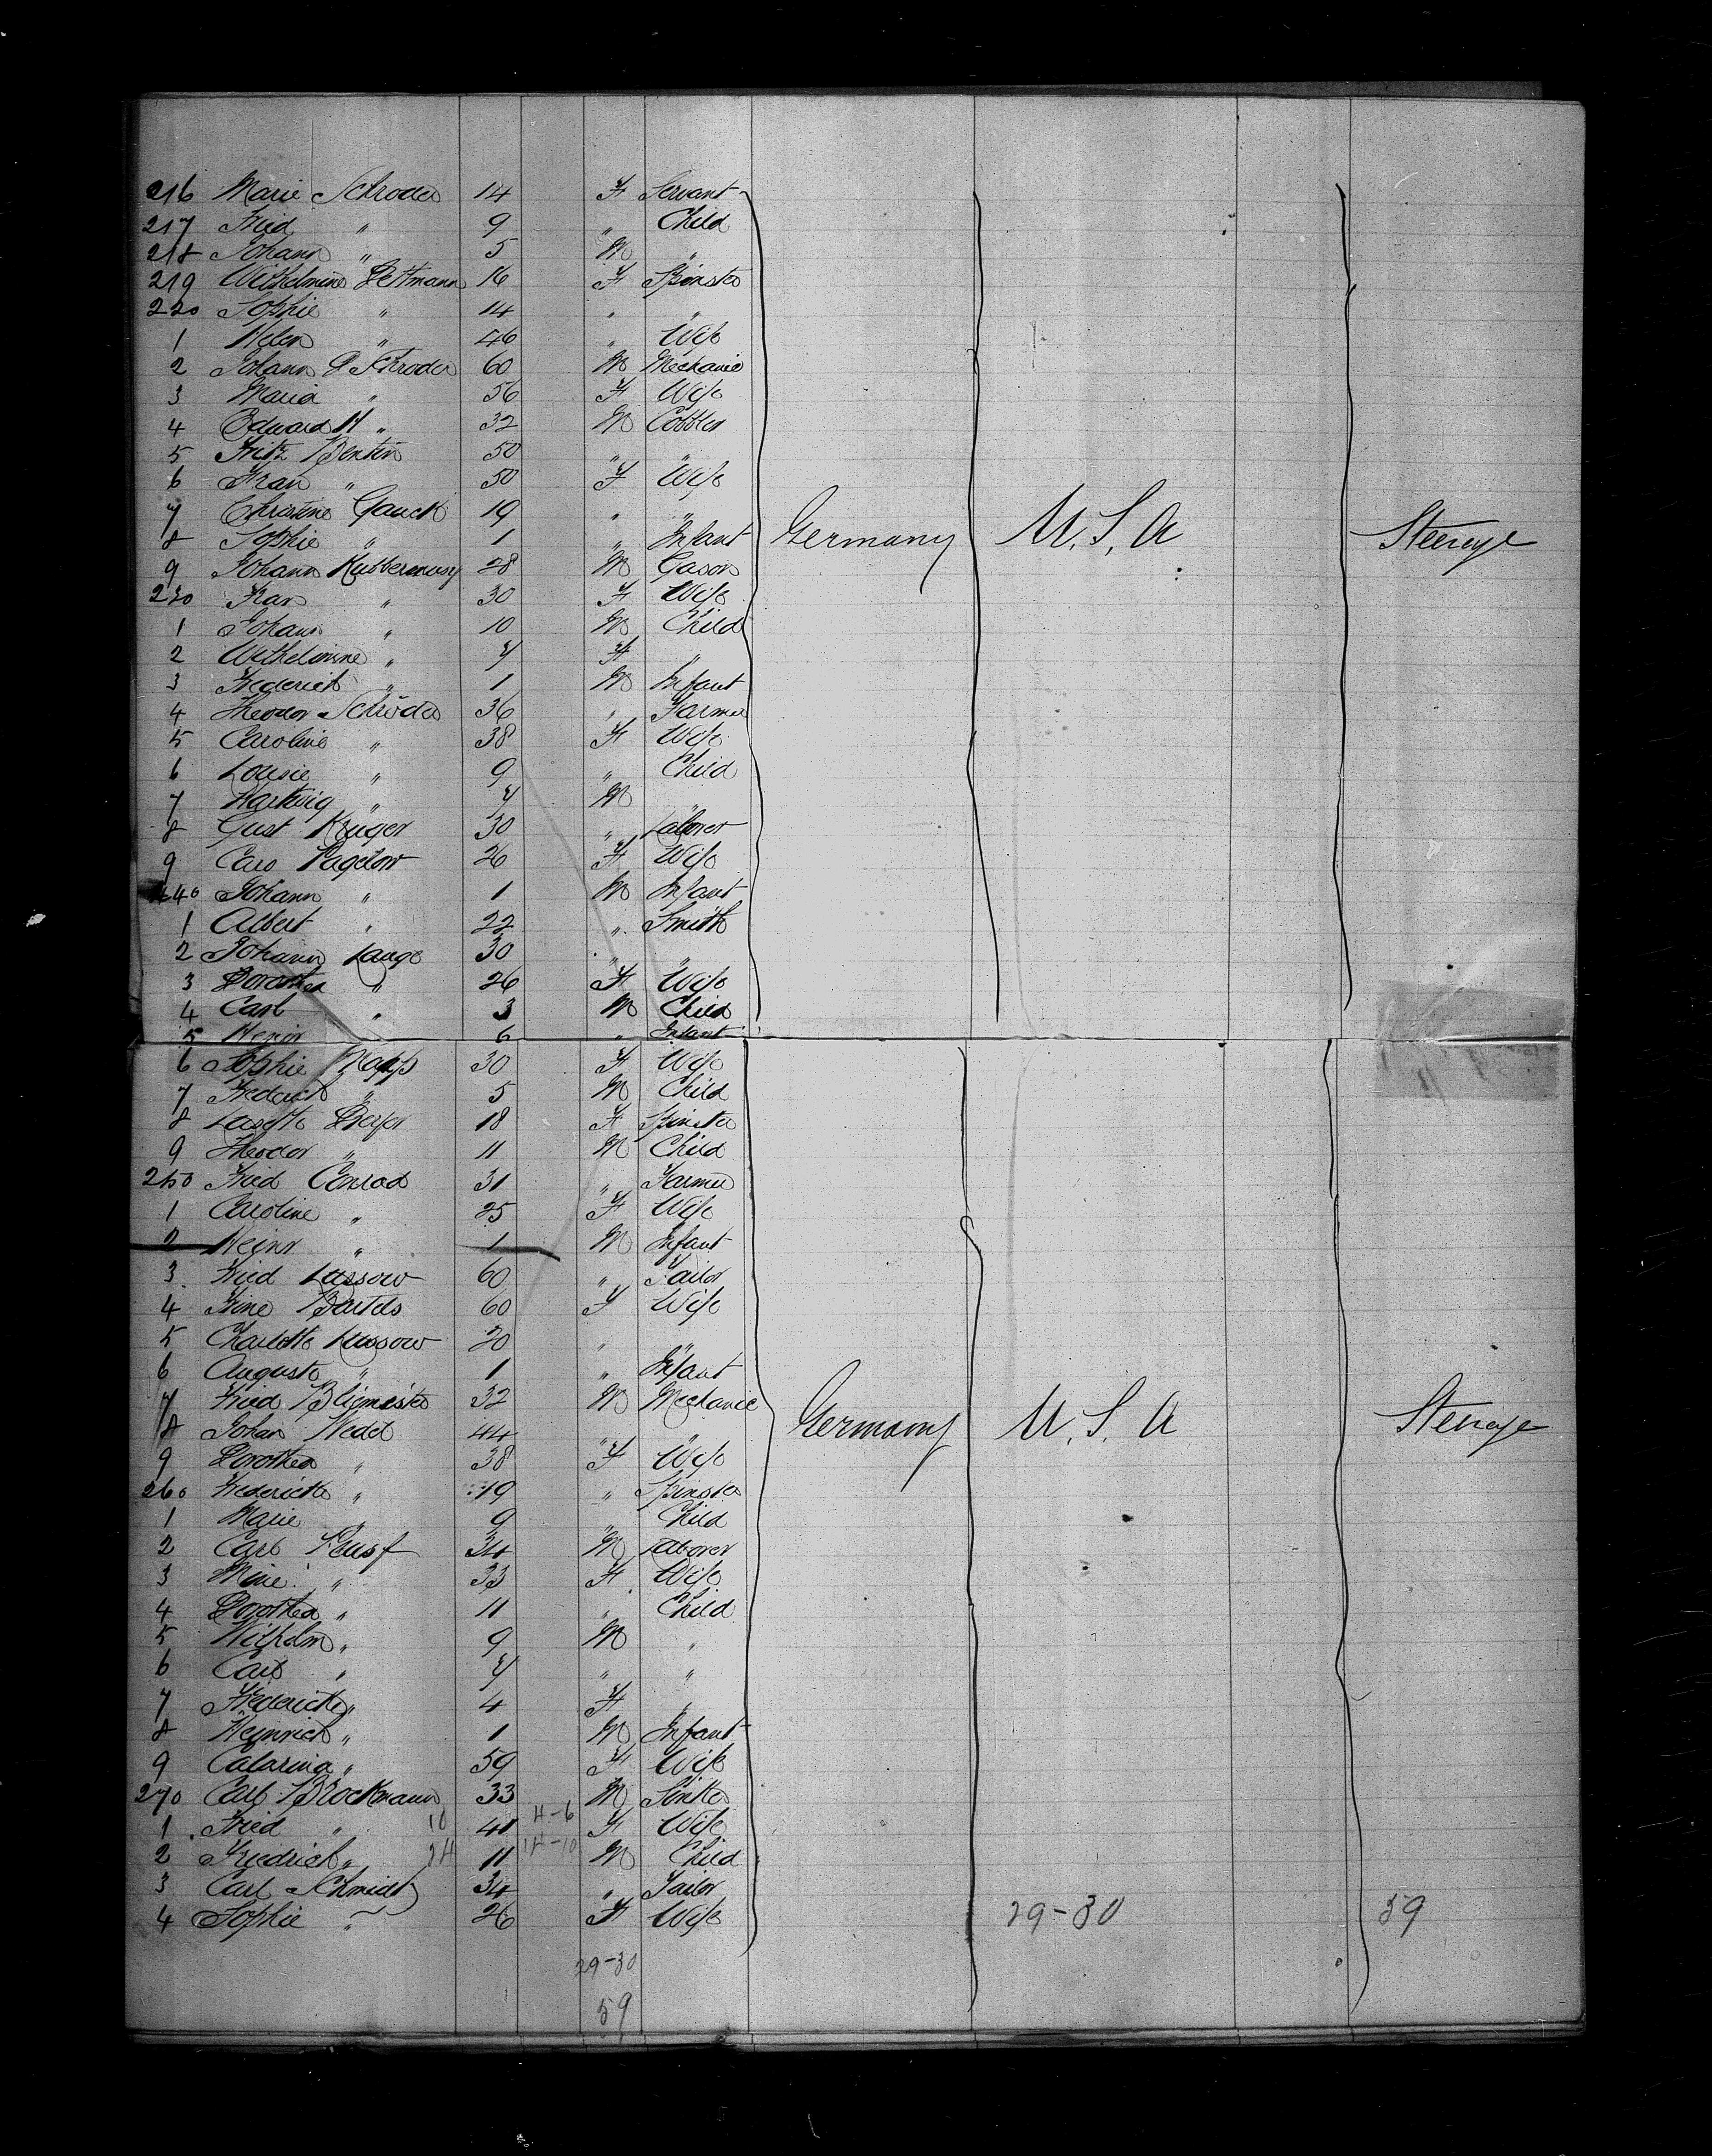 216 Marie Schroder 14 F Servant
217 Fried " 9 " Child
218 Johann " 5 M "
219 Wilhelmine Dettmann 16 F Spinster
220 Sophie " 14 " "
1 Helen " 46 " Wife
2 Johann Schroder 60 M Mechanic
3 Maria " 56 F Wife
4 Edward H " 32 M Cobbler
5 Fritz Bentin 50 " "
6 Frau " 50 F Wife
7 Christine Gauck 19 " "
8 Sophie " 1 " Infant
9 Johann 28 M
230 Frau " 30 F Wife
1 Johann " 10 M Child
2 Wilhelmine " 7 F "
3 Frederick " 1 M Infant
4 Theodor Schroder 36 " Farmer
5 Caroline " 38 F Wife
6 Louise " 9 " Child
7 Hartwig " 7 M "
8 Gust Kruger 30 " Laborer
9 Caro Pagelow 26 F Wife
240 Johann " 1 M Infant
1 Albert " 22 " Smith
2 Johann Lange 30 " "
3 Dorothea " 26 F Wife
4 Carl " 3 M Child
5 Heinr 6 " Infant
Germany U.S.A Steerage
6 Sophie 30 F Wife
7 Frederick " 5 M Child
8 18 F Spinster
9 Theodor " 11 M Child
250 Fried Conrad 31 " Farmer
1 Caroline " 25 F Wife
2 Heinr " 1 M Infant
3 Fried Lussow 60 " Tailor
4 Fine Bartels 60 F Wife
5 Charlotte Lussow 20 " "
6 Auguste " 1 " Infant
7 Fried Bliemeister 32 M Mechanic
8 Johan Wedel 44 " "
9 Dorothea " 38 F Wife
260 Fredericke " 19 " Spinster
1 Marie " 9 " Child
2 Carl 34 M Laborer
3 Mine " 33 F Wife
4 Dorothea " 11 " Child
5 Wilhelm " 9 M "
6 Carl " 7 " "
7 Friedericke " 4 F
8 Heinrich " 1 M Infant
9 Catarina " 59 F Wife
270 Carl Brockmann 33 M
1 Fried " 10 41 4-6 F Wife
2 Friedrich " 24 11 14-10 M Child
3 Carl Schmidt 34 " Tailor
4 Sophie " 26 F Wife
Germany U.S.A Steerage
29-30 59
29-30
59